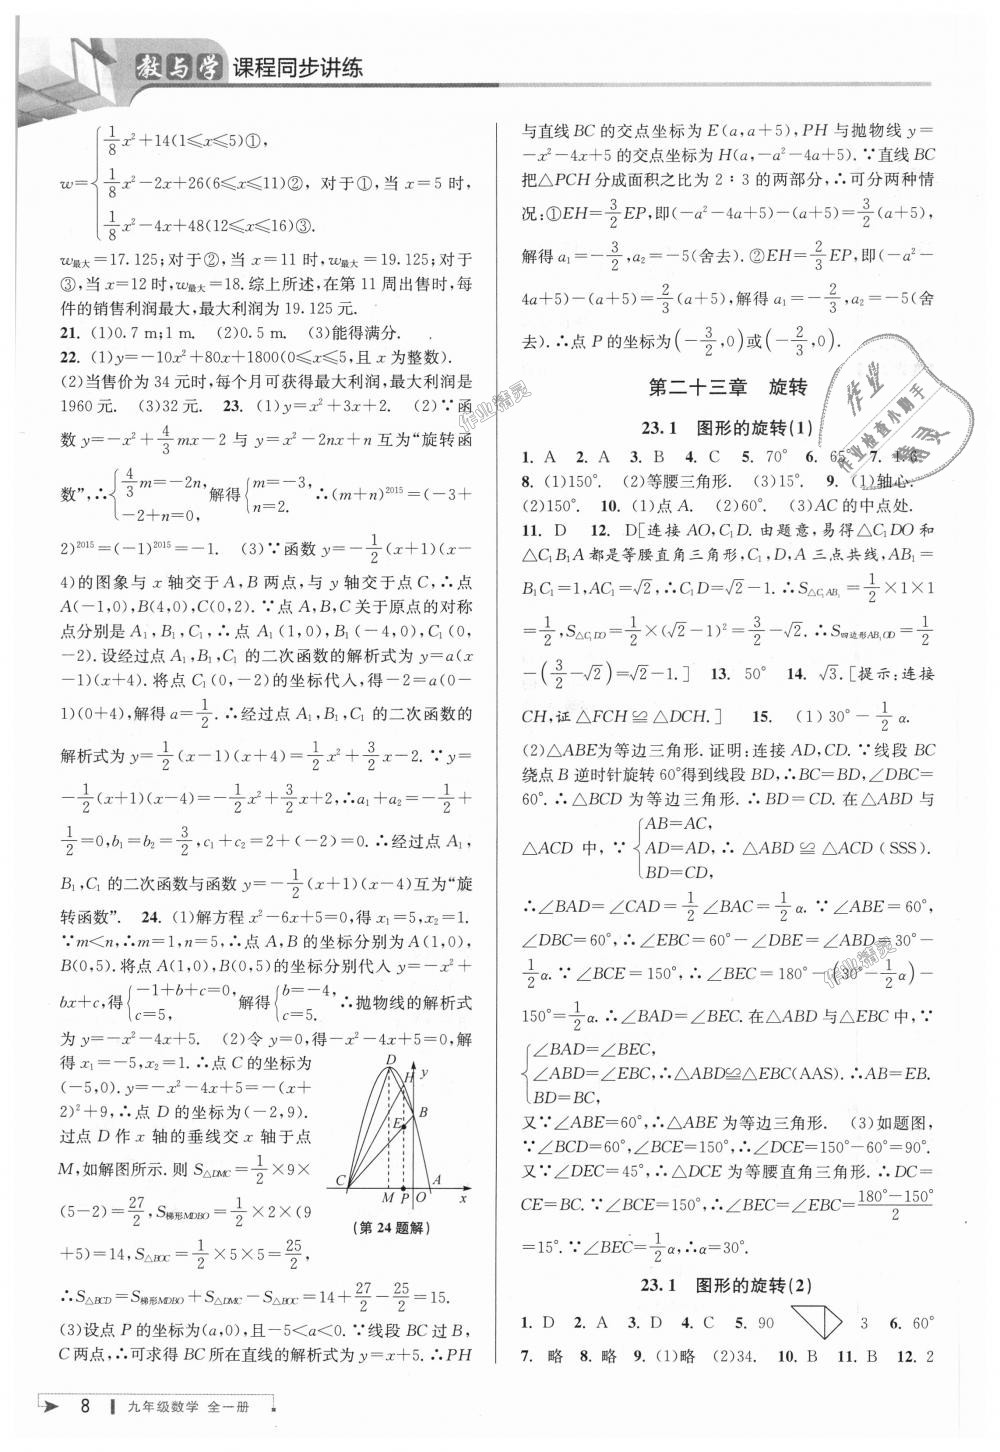 教与学 课程同步讲练
w={1/8x²+14(1⩽x⩽5)①,
1/8x²-2x+26(6⩽x⩽11)②, 对于①,当 x=5 时,
1/8x²-4x+48(12⩽x⩽16)③.
w最大=17.125;对于②,当 x=11 时,w最大=19.125;对于
③,当 x=12 时,w最大=18.综上所述,在第 11 周出售时,每
件的销售利润最大,最大利润为 19.125 元.
21. (1)0.7 m;1 m. (2)0.5 m. (3)能得满分.
22. (1)y=-10x²+80x+1800(0⩽x⩽5,且 x 为整数).
(2)当售价为 34 元时,每个月可获得最大利润,最大利润是
1960 元. (3)32 元. 23. (1)y=x²+3x+2. (2)∵函
数 y=-x²+4/3mx-2 与 y=x²-2nx+n 互为“旋转函
数”,∴{4/3m=-2n, -2+n=0, 解得{m=-3, n=2. ∴(m+n)²⁰¹⁵=(-3+
2)²⁰¹⁵=(-1)²⁰¹⁵=-1. (3)∵函数 y=-1/2(x+1)(x-
4)的图象与 x 轴交于 A,B 两点,与 y 轴交于点 C,∴点
A(-1,0),B(4,0),C(0,2).∵点 A,B,C 关于原点的对称
点分别是 A₁,B₁,C₁,∴点 A₁(1,0),B₁(-4,0),C₁(0,
-2).设经过点 A₁,B₁,C₁ 的二次函数的解析式为 y=a(x
-1)(x+4).将点 C₁(0,-2)的坐标代入,得-2=a(0-
1)(0+4),解得 a=1/2.∴经过点 A₁,B₁,C₁ 的二次函数的
解析式为 y=1/2(x-1)(x+4)=1/2x²+3/2x-2.∵y=
-1/2(x+1)(x-4)=-1/2x²+3/2x+2,∴a₁+a₂=-1/2+
1/2=0,b₁=b₂=3/2,c₁+c₂=2+(-2)=0.∴经过点 A₁,
B₁,C₁ 的二次函数与函数 y=-1/2(x+1)(x-4)互为“旋
转函数”. 24. (1)解方程 x²-6x+5=0,得 x₁=5,x₂=1.
∵m<n,∴m=1,n=5,∴点 A,B 的坐标分别为 A(1,0),
B(0,5).将点 A(1,0),B(0,5)的坐标分别代入 y=-x²+
bx+c,得{-1+b+c=0, c=5, 解得{b=-4, c=5. ∴抛物线的解析式
为 y=-x²-4x+5. (2)令 y=0,得-x²-4x+5=0,解
得 x₁=-5,x₂=1.∴点 C 的坐标为
(-5,0).y=-x²-4x+5=-(x+
2)²+9,∴点 D 的坐标为(-2,9).
过点 D 作 x 轴的垂线交 x 轴于点
M,如解图所示.则 S△DMC=1/2×9×
(5-2)=27/2,S梯形MDBO=1/2×2×(9
+5)=14,S△BOC=1/2×5×5=25/2,
D H y B E C A M P O x
(第 24 题解)
∴S△BCD=S梯形MDBO+S△DMC-S△BOC=14+27/2-25/2=15.
(3)设点 P 的坐标为(a,0),且-5<a<0.∵线段 BC 过 B,
C 两点,∴可求得 BC 所在直线的解析式为 y=x+5.∴PH
与直线 BC 的交点坐标为 E(a,a+5),PH 与抛物线 y=
-x²-4x+5 的交点坐标为 H(a,-a²-4a+5).∵直线 BC
把△PCH 分成面积之比为 2∶3 的两部分,∴可分两种情
况:①EH=3/2EP,即(-a²-4a+5)-(a+5)=3/2(a+5),
解得 a₁=-3/2,a₂=-5(舍去).②EH=2/3EP,即(-a²-
4a+5)-(a+5)=2/3(a+5),解得 a₁=-2/3,a₂=-5(舍
去).∴点 P 的坐标为(-3/2,0)或(-2/3,0).
第二十三章 旋转
23.1 图形的旋转(1)
1. A 2. A 3. B 4. C 5. 70° 6. 65° 7.
8. (1)150°. (2)等腰三角形. (3)15°. 9. (1)轴心.
(2)150°. 10. (1)点 A. (2)60°. (3)AC 的中点处.
11. D 12. D[连接 AO,C₁D.由题意,易得△C₁DO 和
△C₁B₁A 都是等腰直角三角形,C₁,D,A 三点共线,AB₁=
B₁C₁=1,AC₁=√2,∴C₁D=√2-1.∴S△C₁AB₁=1/2×1×1
=1/2,S△C₁DO=1/2×(√2-1)²=3/2-√2.∴S四边形AB₁OD=1/2
-(3/2-√2)=√2-1.] 13. 50° 14. √3.[提示:连接
CH,证△FCH≌△DCH.] 15. (1)30°-1/2α.
(2)△ABE为等边三角形.证明:连接 AD,CD.∵线段 BC
绕点 B 逆时针旋转 60°得到线段 BD,∴BC=BD,∠DBC=
60°.∴△BCD 为等边三角形.∴BD=CD.在△ABD 与
△ACD 中,∵{AB=AC, AD=AD, BD=CD, ∴△ABD≌△ACD(SSS).
∴∠BAD=∠CAD=1/2∠BAC=1/2α.∵∠ABE=60°,
∠DBC=60°,∴∠EBC=60°-∠DBE=∠ABD=30°-
1/2α.∵∠BCE=150°,∴∠BEC=180°-(30°-1/2α)-
150°=1/2α.∴∠BAD=∠BEC.在△ABD 与△EBC 中,∵
{∠BAD=∠BEC,
∠ABD=∠EBC,∴△ABD≌△EBC(AAS).∴AB=EB.
BD=BC,
又∵∠ABE=60°,∴△ABE 为等边三角形. (3)如题图,
∵∠BCD=60°,∠BCE=150°,∴∠DCE=150°-60°=90°.
又∵∠DEC=45°,∴△DCE 为等腰直角三角形.∴DC=
CE=BC.∵∠BCE=150°,∴∠BEC=∠EBC=(180°-150°)/2
=15°.∵∠BEC=1/2α,∴α=30°.
23.1 图形的旋转(2)
1. D 2. A 3. D 4. C 5. 90 3 6. 60°
7. 略 8. 略 9. (1)略 (2)34. 10. B 11. B 12. 2
8 九年级数学 全一册
作业精灵
作业检查小助手